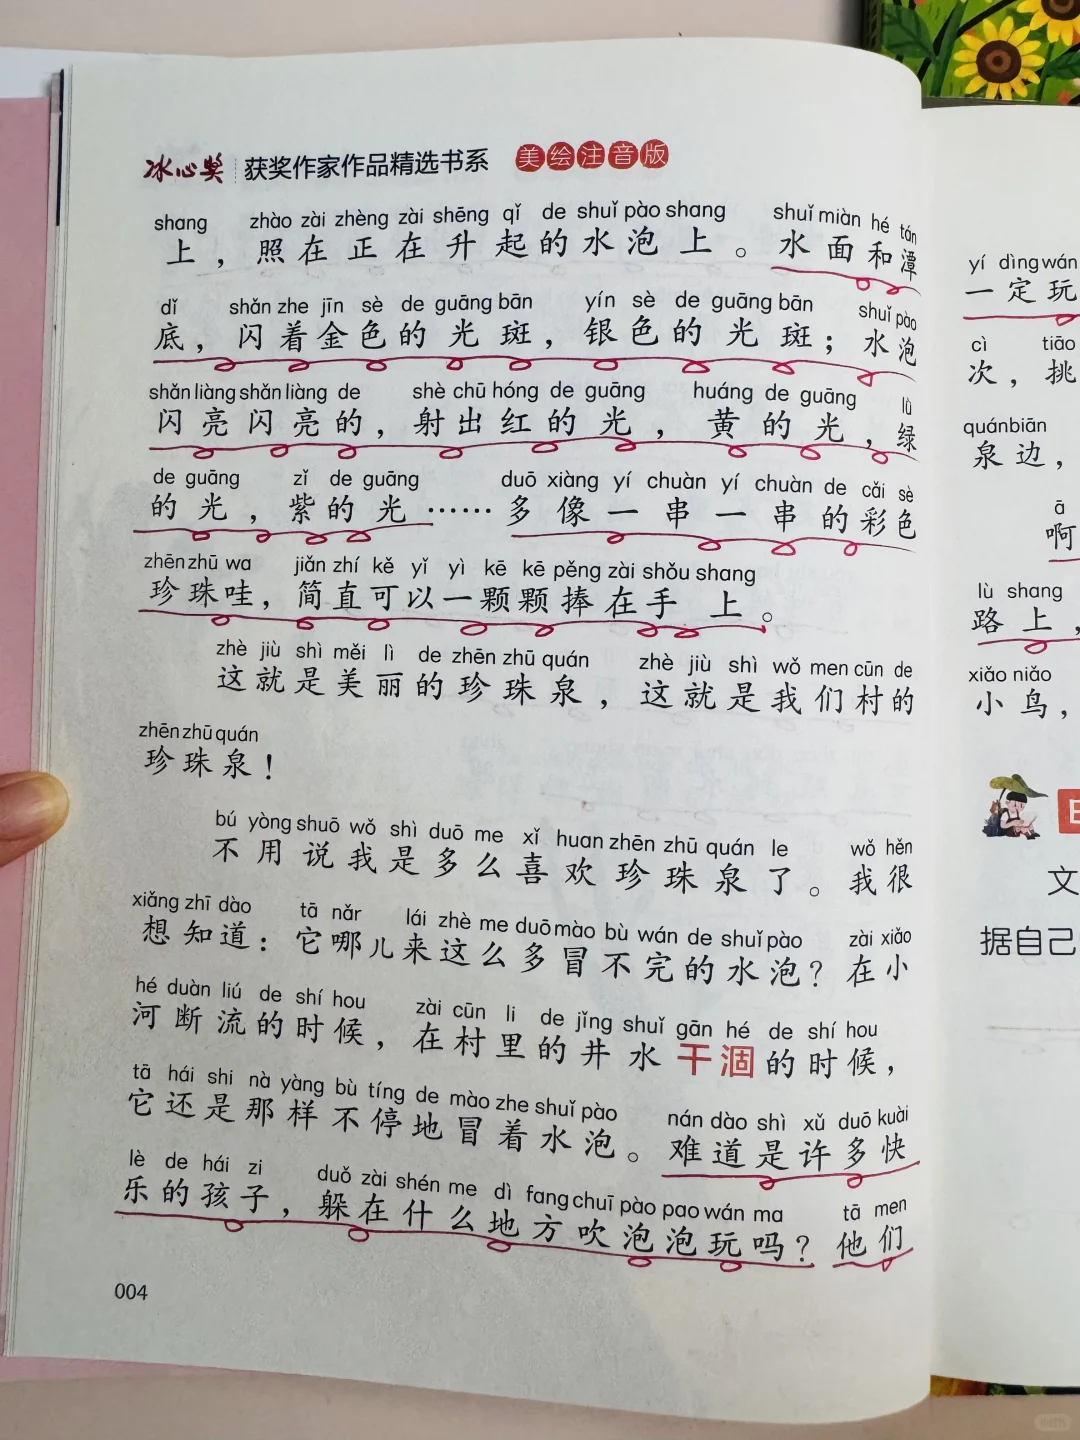 冰心奖 获奖作家作品精选书系 美绘注音版
shang zhào zài zhèng zài shēng qǐ de shuǐ pào shang shuǐ miàn hé tán
上，照在正在升起的水泡上。水面和潭
dǐ shǎn zhe jīn sè de guāng bān yín sè de guāng bān shuǐ pào
底，闪着金色的光斑，银色的光斑；水泡
shǎn liàng shǎn liàng de shè chū hóng de guāng huáng de guāng lǜ
闪亮闪亮的，射出红的光，黄的光，绿
de guāng zǐ de guāng duō xiàng yí chuàn yí chuàn de cǎi sè
的光，紫的光……多像一串一串的彩色
zhēn zhū wa jiǎn zhí kě yǐ yì kē kē pěng zài shǒu shang
珍珠哇，简直可以一颗颗捧在手上。
zhè jiù shì měi lì de zhēn zhū quán zhè jiù shì wǒ men cūn de
这就是美丽的珍珠泉，这就是我们村的
zhēn zhū quán
珍珠泉！
bú yòng shuō wǒ shì duō me xǐ huan zhēn zhū quán le wǒ hěn
不用说我是多么喜欢珍珠泉了。我很
xiǎng zhī dào tā nǎr lái zhè me duō mào bù wán de shuǐ pào zài xiǎo
想知道：它哪儿来这么多冒不完的水泡？在小
hé duàn liú de shí hou zài cūn li de jǐng shuǐ gān hé de shí hou
河断流的时候，在村里的井水干涸的时候，
tā hái shi nà yàng bù tíng de mào zhe shuǐ pào nán dào shì xǔ duō kuài
它还是那样不停地冒着水泡。难道是许多快
lè de hái zi duǒ zài shén me dì fang chuī pào pao wán ma tā men
乐的孩子，躲在什么地方吹泡泡玩吗？他们
004
yí dìng wán
一定玩
cì tiāo
次，挑
quán biān
泉边，
ā
啊
lù shang
路上，
xiǎo niǎo
小鸟，
文
据自己